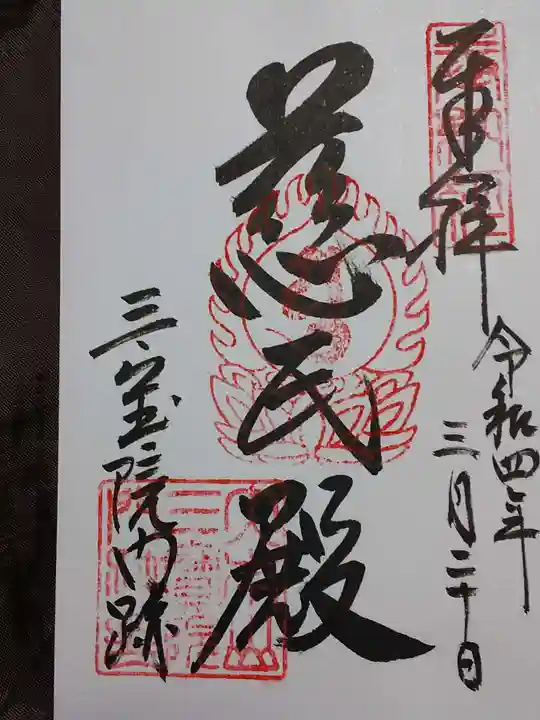 奉拝
令和四年
三月二十日
慈氏殿
三宝院門跡